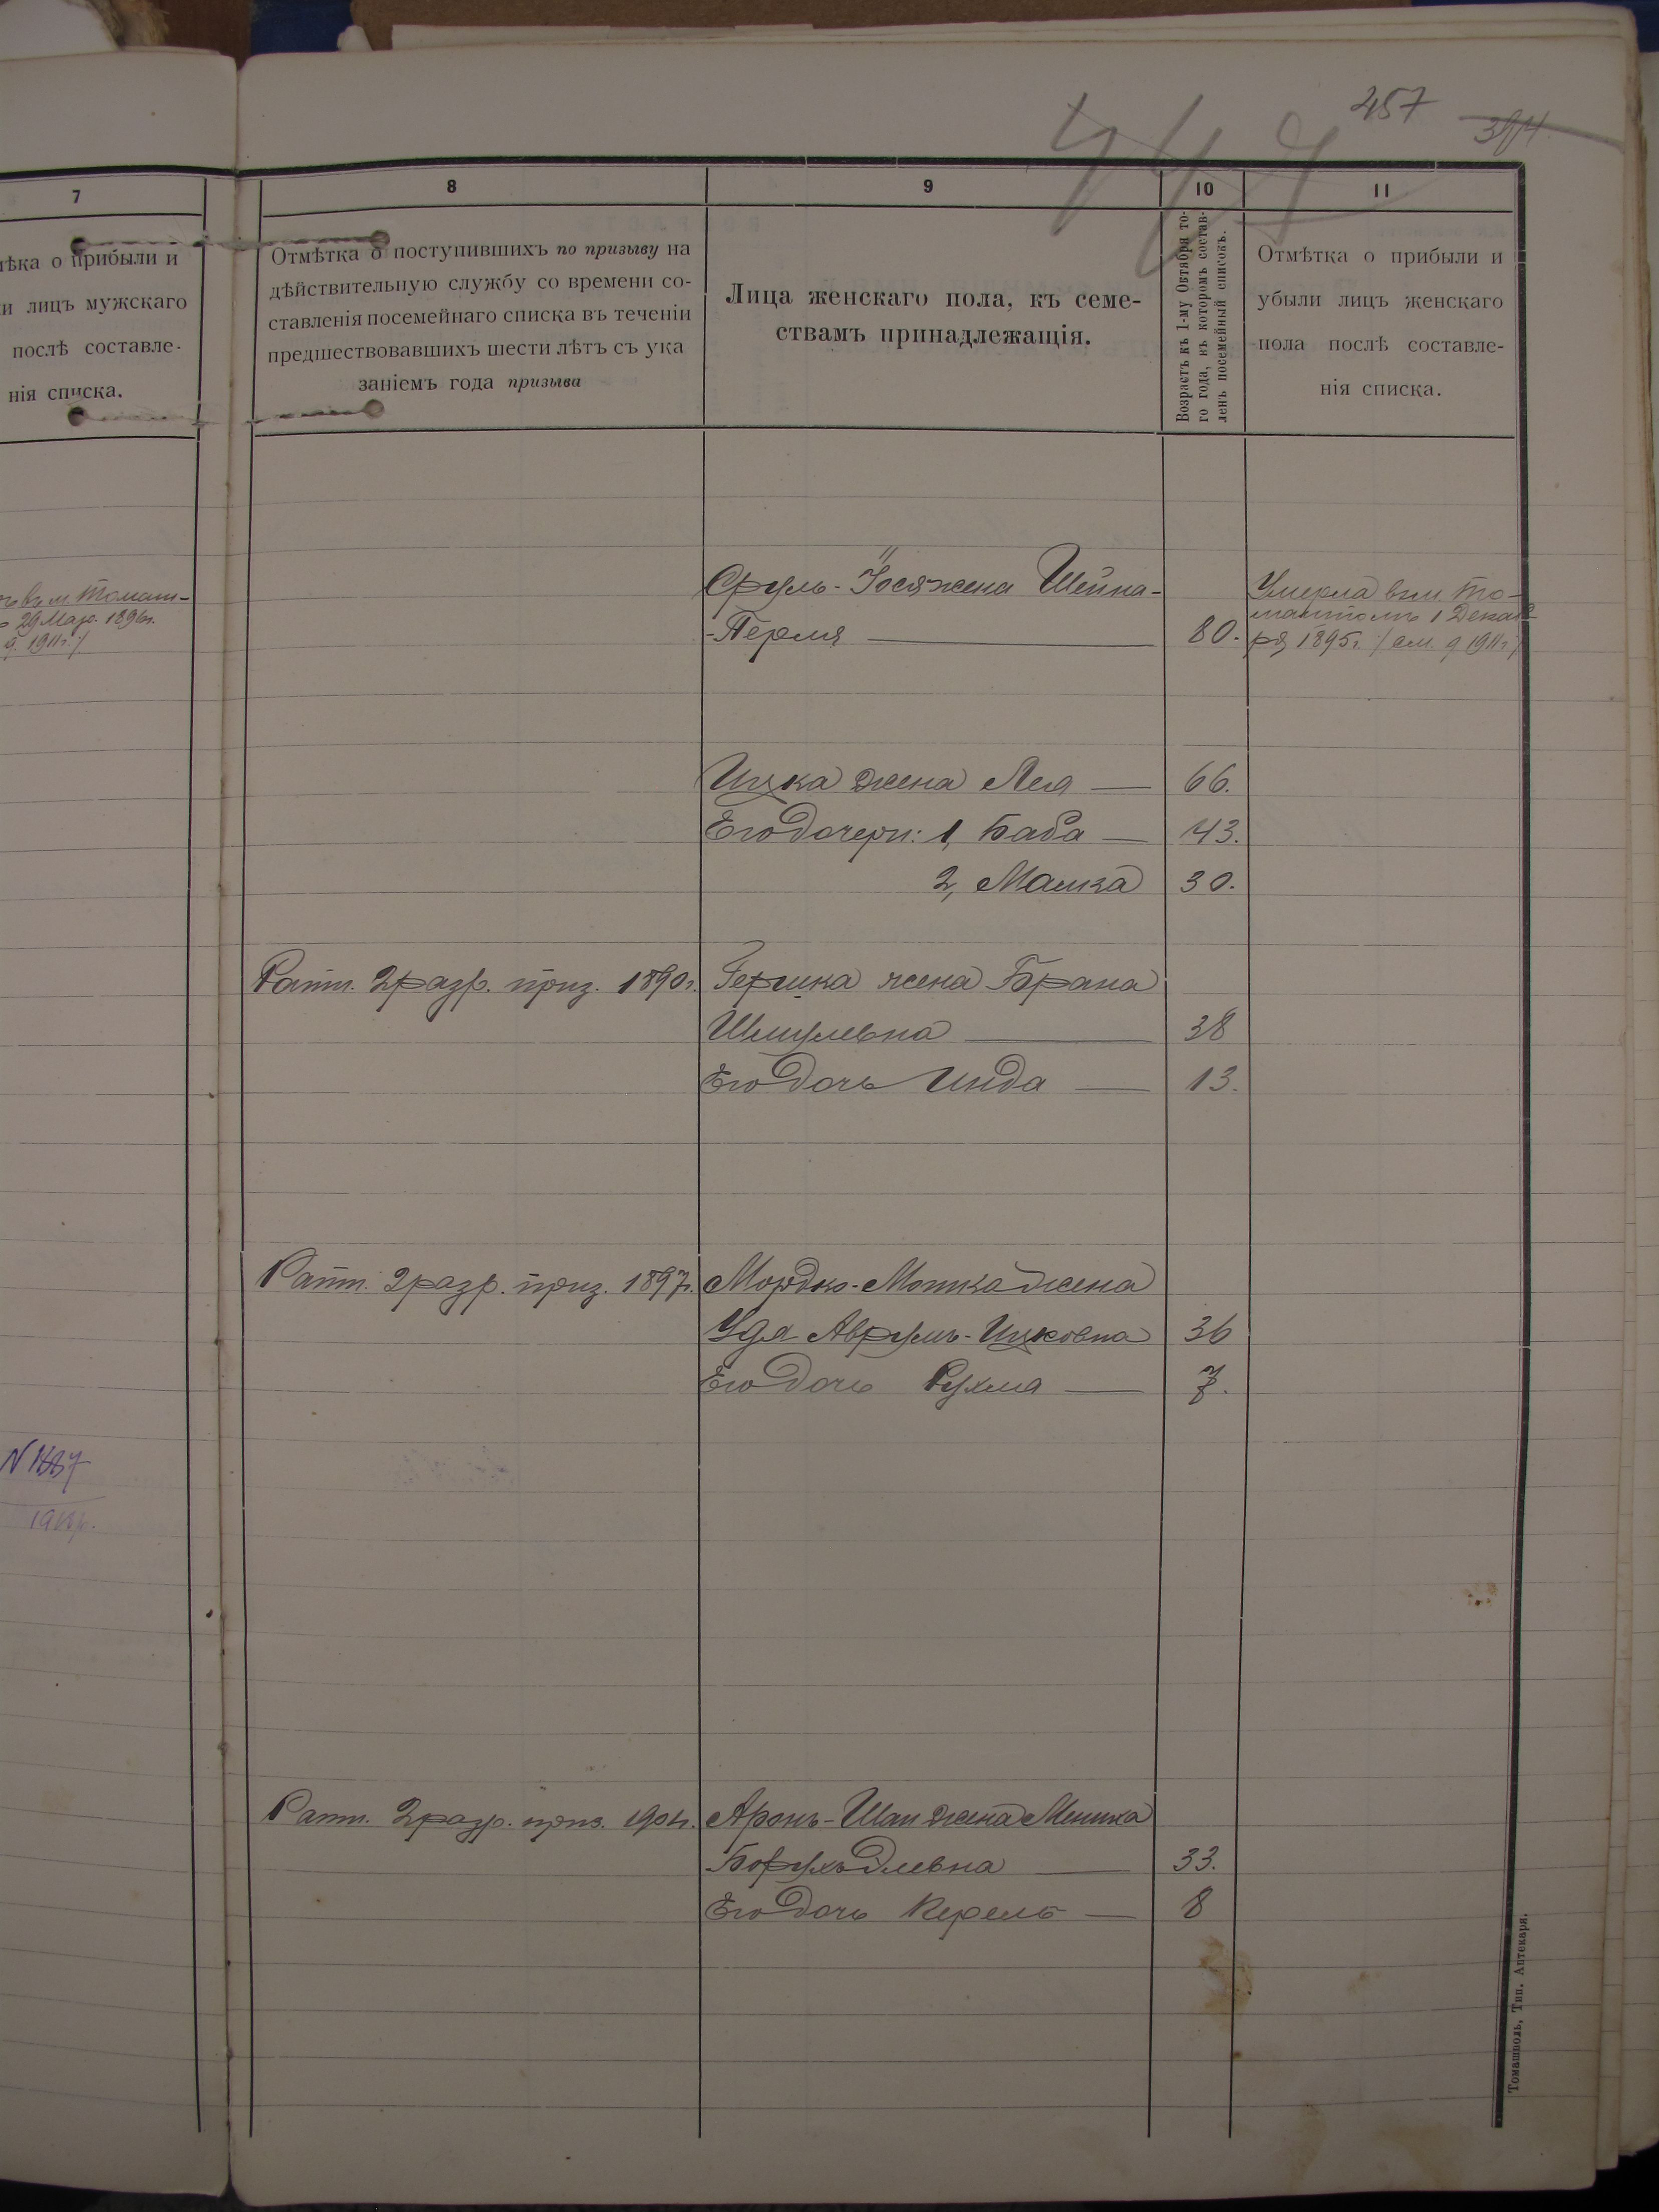 457
394
7
8
9
10
11
ѣка о прибыли и
и лицъ мужскаго
послѣ составле-
нія списка.
Отмѣтка о поступившихъ по призыву на
дѣйствительную службу со времени со-
ставленія посемейнаго списка въ теченіи
предшествовавшихъ шести лѣтъ съ ука
заніемъ года призыва
Лица женскаго пола, къ семе-
ствамъ принадлежащія.
Возрастъ къ 1-му Октября то-
го года, въ которомъ состав-
ленъ посемейный списокъ.
Отмѣтка о прибыли и
убыли лицъ женскаго
пола послѣ составле-
нія списка.
въ м. Томаш-
29 Мар. 1896г.
1911г.)
Сруль-Іося жена Шейна-
-Перля 80.
Умерла въ м. То-
машполь 1 Декаб-
ря 1895г. (см. д 1911г.)
Ицка жена Лея 66.
Его дочери: 1, Баба 43.
2, Малка 30.
Ратн. 2 разр. приз. 1890г. Гершка жена Брана
Шмулевна 38
Его дочь Инда 13.
Ратн. 2 разр. приз. 1897г. Мордко-Мошка жена
Удя Аврумъ-Ицковна 36
Его дочь Рухля 7.
N 1887
Ратн. 2 разр. приз. 1904г. Аронъ-Шая жена Менька
Борухъ 33.
Его дочь Керель 8
Томашполь, Тип. Аптекаря.